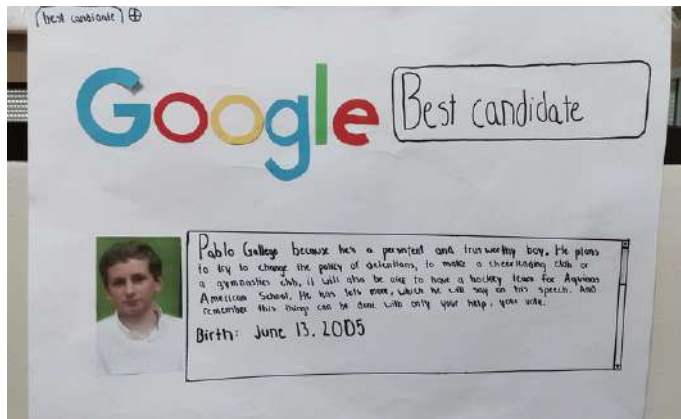 best candidate
Google
Best candidate
Pablo Gallego because he's a persistent and trustworthy boy. He plans
to try to change the policy of detentions, to make a cheerleading club or
a gymnastics club, it will also be able to have a hockey team for Aquinas
American School. He has lots more, which he will say on his speech. And
remember this things can be done with only your help, your vote.
Birth: June 13, 2005